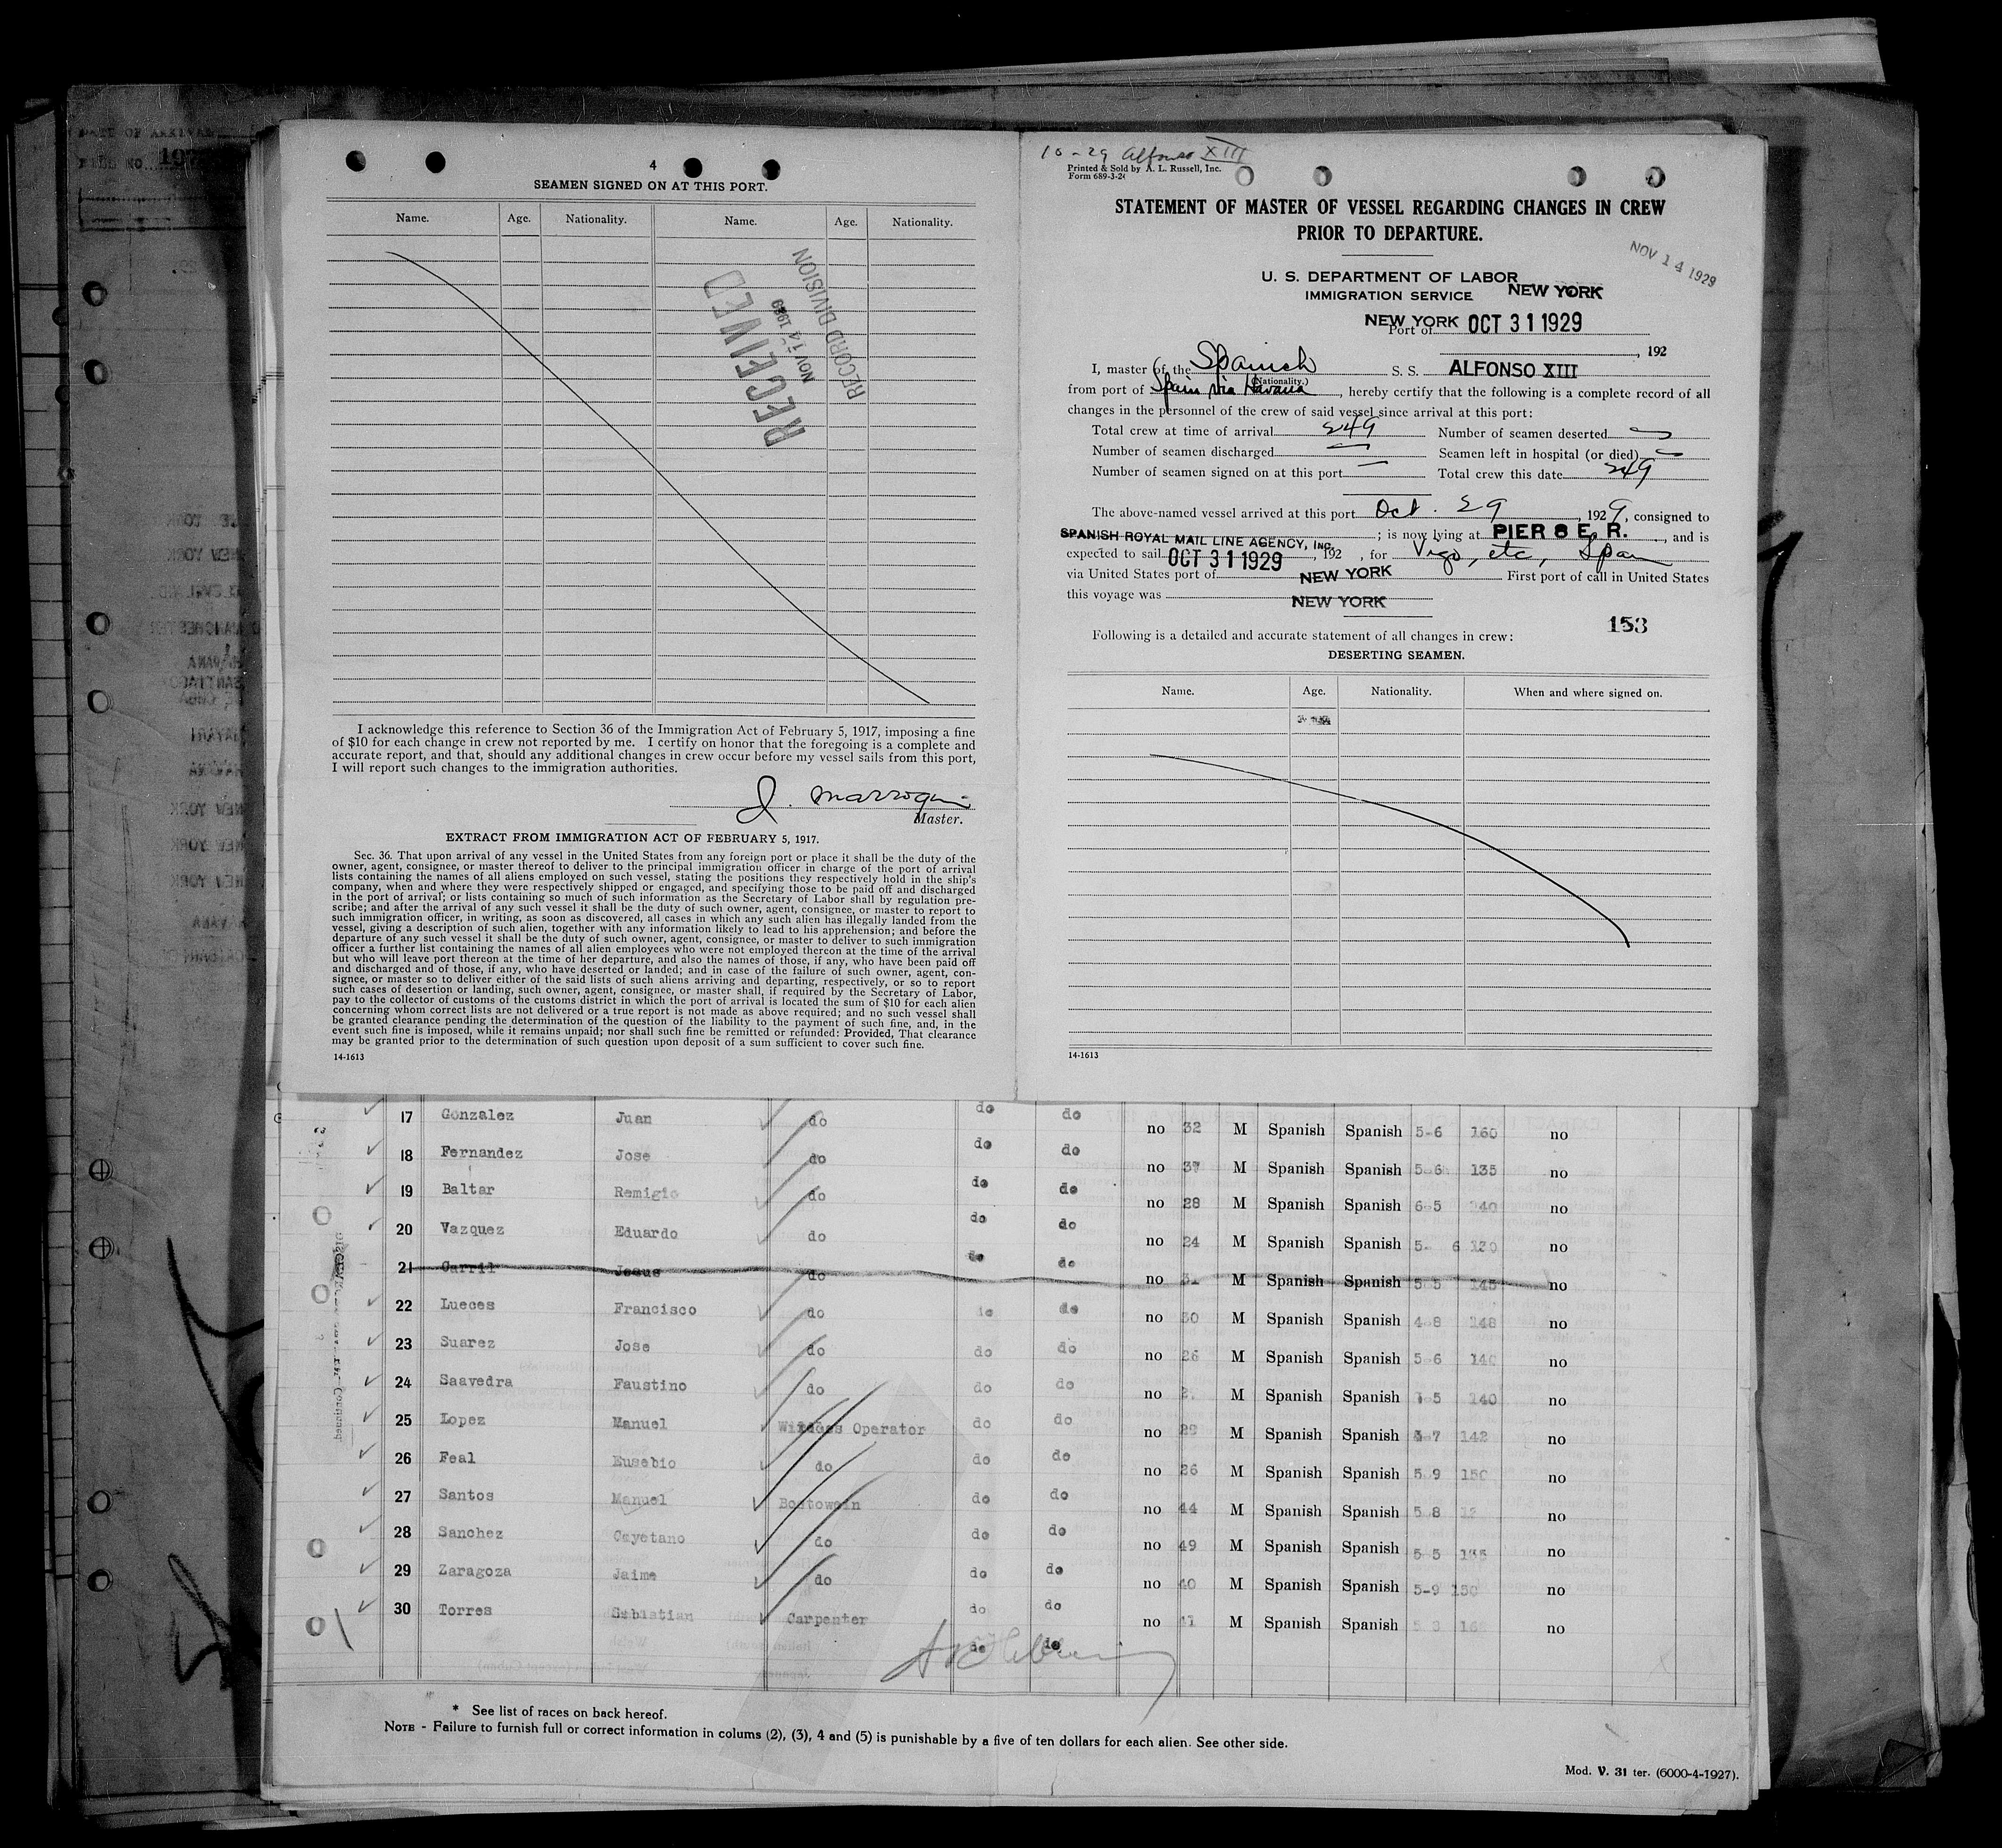 4
SEAMEN SIGNED ON AT THIS PORT.
Name. Age. Nationality. Name. Age. Nationality.
RECEIVED
NOV 14 1929
RECORD DIVISION
I acknowledge this reference to Section 36 of the Immigration Act of February 5, 1917, imposing a fine
of $10 for each change in crew not reported by me. I certify on honor that the foregoing is a complete and
accurate report, and that, should any additional changes in crew occur before my vessel sails from this port,
I will report such changes to the immigration authorities.
Master.
EXTRACT FROM IMMIGRATION ACT OF FEBRUARY 5, 1917.
Sec. 36. That upon arrival of any vessel in the United States from any foreign port or place it shall be the duty of the
owner, agent, consignee, or master thereof to deliver to the principal immigration officer in charge of the port of arrival
lists containing the names of all aliens employed on such vessel, stating the positions they respectively hold in the ship's
company, when and where they were respectively shipped or engaged, and specifying those to be paid off and discharged
in the port of arrival; or lists containing so much of such information as the Secretary of Labor shall by regulation pre-
scribe; and after the arrival of any such vessel it shall be the duty of such owner, agent, consignee, or master to report to
such immigration officer, in writing, as soon as discovered, all cases in which any such alien has illegally landed from the
vessel, giving a description of such alien, together with any information likely to lead to his apprehension; and before the
departure of any such vessel it shall be the duty of such owner, agent, consignee, or master to deliver to such immigration
officer a further list containing the names of all alien employees who were not employed thereon at the time of the arrival
but who will leave port thereon at the time of her departure, and also the names of those, if any, who have been paid off
and discharged and of those, if any, who have deserted or landed; and in case of the failure of such owner, agent, con-
signee, or master so to deliver either of the said lists of such aliens arriving and departing, respectively, or so to report
such cases of desertion or landing, such owner, agent, consignee, or master shall, if required by the Secretary of Labor,
pay to the collector of customs of the customs district in which the port of arrival is located the sum of $10 for each alien
concerning whom correct lists are not delivered or a true report is not made as above required; and no such vessel shall
be granted clearance pending the determination of the question of the liability to the payment of such fine, and, in the
event such fine is imposed, while it remains unpaid; nor shall such fine be remitted or refunded: Provided, That clearance
may be granted prior to the determination of such question upon deposit of a sum sufficient to cover such fine.
14-1613
10-29 Alfonso XIII
Printed & Sold by A. L. Russell, Inc.
Form 689-3-2
STATEMENT OF MASTER OF VESSEL REGARDING CHANGES IN CREW
PRIOR TO DEPARTURE.
NOV 14 1929
U. S. DEPARTMENT OF LABOR
IMMIGRATION SERVICE NEW YORK
NEW YORK OCT 31 1929
Port of
, 192
I, master of the Spanish S. S. ALFONSO XIII
(Nationality.)
from port of Spain via Havana, hereby certify that the following is a complete record of all
changes in the personnel of the crew of said vessel since arrival at this port:
Total crew at time of arrival 249 Number of seamen deserted —
Number of seamen discharged — Seamen left in hospital (or died) —
Number of seamen signed on at this port — Total crew this date 249
The above-named vessel arrived at this port Oct. 29, 1929, consigned to
SPANISH ROYAL MAIL LINE AGENCY, INC. ; is now lying at PIER 8 E. R. , and is
expected to sail OCT 31 1929, 192 , for Vigo, etc, Spain
via United States port of NEW YORK First port of call in United States
this voyage was NEW YORK
153
Following is a detailed and accurate statement of all changes in crew:
DESERTING SEAMEN.
Name. Age. Nationality. When and where signed on.
14-1613
17 Gonzalez Juan do do do no 32 M Spanish Spanish 5-6 160 no
18 Fernandez Jose do do do no 37 M Spanish Spanish 5-6 135 no
19 Baltar Remigio do do do no 28 M Spanish Spanish 6-5 140 no
20 Vazquez Eduardo do do do no 24 M Spanish Spanish 5- 6 130 no
21 Carril Jesus do do do no M Spanish Spanish 5-5 145 no
22 Lueces Francisco do do do no 30 M Spanish Spanish 4-8 148 no
23 Suarez Jose do do do no 26 M Spanish Spanish 5-6 140 no
24 Saavedra Faustino do do do no M Spanish Spanish 140 no
25 Lopez Manuel Operator do do no 29 M Spanish Spanish 142 no
26 Feal Eusebio do do do no 26 M Spanish Spanish 5-9 150 no
27 Santos Manuel Bostowain do do no 44 M Spanish Spanish 5-8 no
28 Sanchez Cayetano do do do no 49 M Spanish Spanish 5-5 135 no
29 Zaragoza Jaime do do do no 40 M Spanish Spanish 5-9 no
30 Torres Sebastian Carpenter do do no 41 M Spanish Spanish no
do do
* See list of races on back hereof.
NOTE - Failure to furnish full or correct information in colums (2), (3), 4 and (5) is punishable by a five of ten dollars for each alien. See other side.
Mod. V. 31 ter. (6000-4-1927).